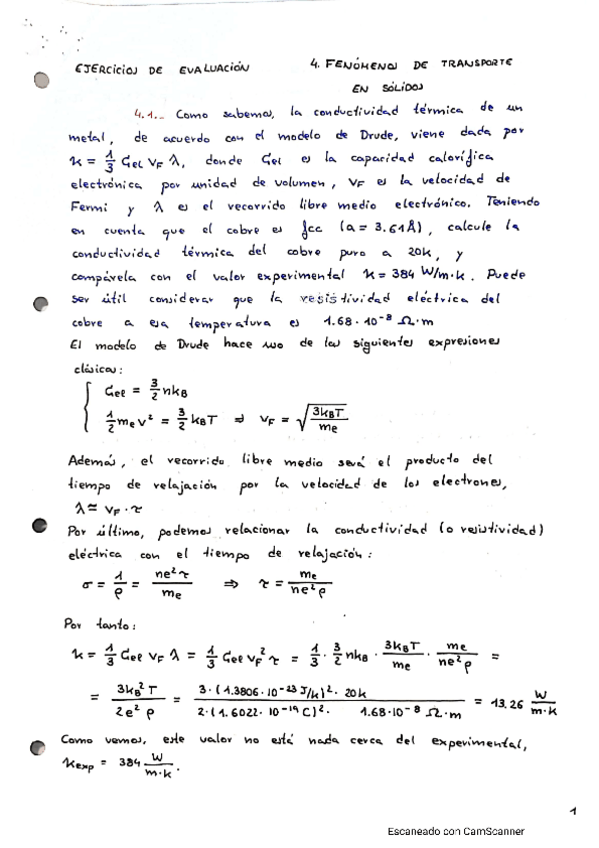 EJERCICIOS DE EVALUACIÓN
4. FENÓMENOS DE TRANSPORTE
EN SÓLIDOS
4.1._ Como sabemos, la conductividad térmica de un
metal, de acuerdo con el modelo de Drude, viene dada por
κ = 1/3 Cel VF λ, donde Cel es la capacidad calorífica
electrónica por unidad de volumen, VF es la velocidad de
Fermi y λ es el recorrido libre medio electrónico. Teniendo
en cuenta que el cobre es fcc (a = 3.61Å), calcule la
conductividad térmica del cobre puro a 20K, y
compárela con el valor experimental κ = 384 W/m·K. Puede
ser útil considerar que la resistividad eléctrica del
cobre a esa temperatura es 1.68·10⁻⁸ Ω·m
El modelo de Drude hace uso de las siguientes expresiones
clásicas:
Cel = 3/2 nkB
1/2 me v² = 3/2 kBT ⇒ VF = √(3kBT/me)
Además, el recorrido libre medio será el producto del
tiempo de relajación por la velocidad de los electrones,
λ ≃ VF · τ
Por último, podemos relacionar la conductividad (o resistividad)
eléctrica con el tiempo de relajación:
σ = 1/ρ = ne²τ/me ⇒ τ = me/ne²ρ
Por tanto:
κ = 1/3 Cel VF λ = 1/3 Cel VF² τ = 1/3 · 3/2 nkB · 3kBT/me · me/ne²ρ =
= 3kB²T/2e²ρ = 3·(1.3806·10⁻²³ J/K)²· 20K / 2·(1.6022·10⁻¹⁹ C)²· 1.68·10⁻⁸ Ω·m = 13.26 W/m·K
Como vemos, este valor no está nada cerca del experimental,
κexp = 384 W/m·K.
1
Escaneado con CamScanner